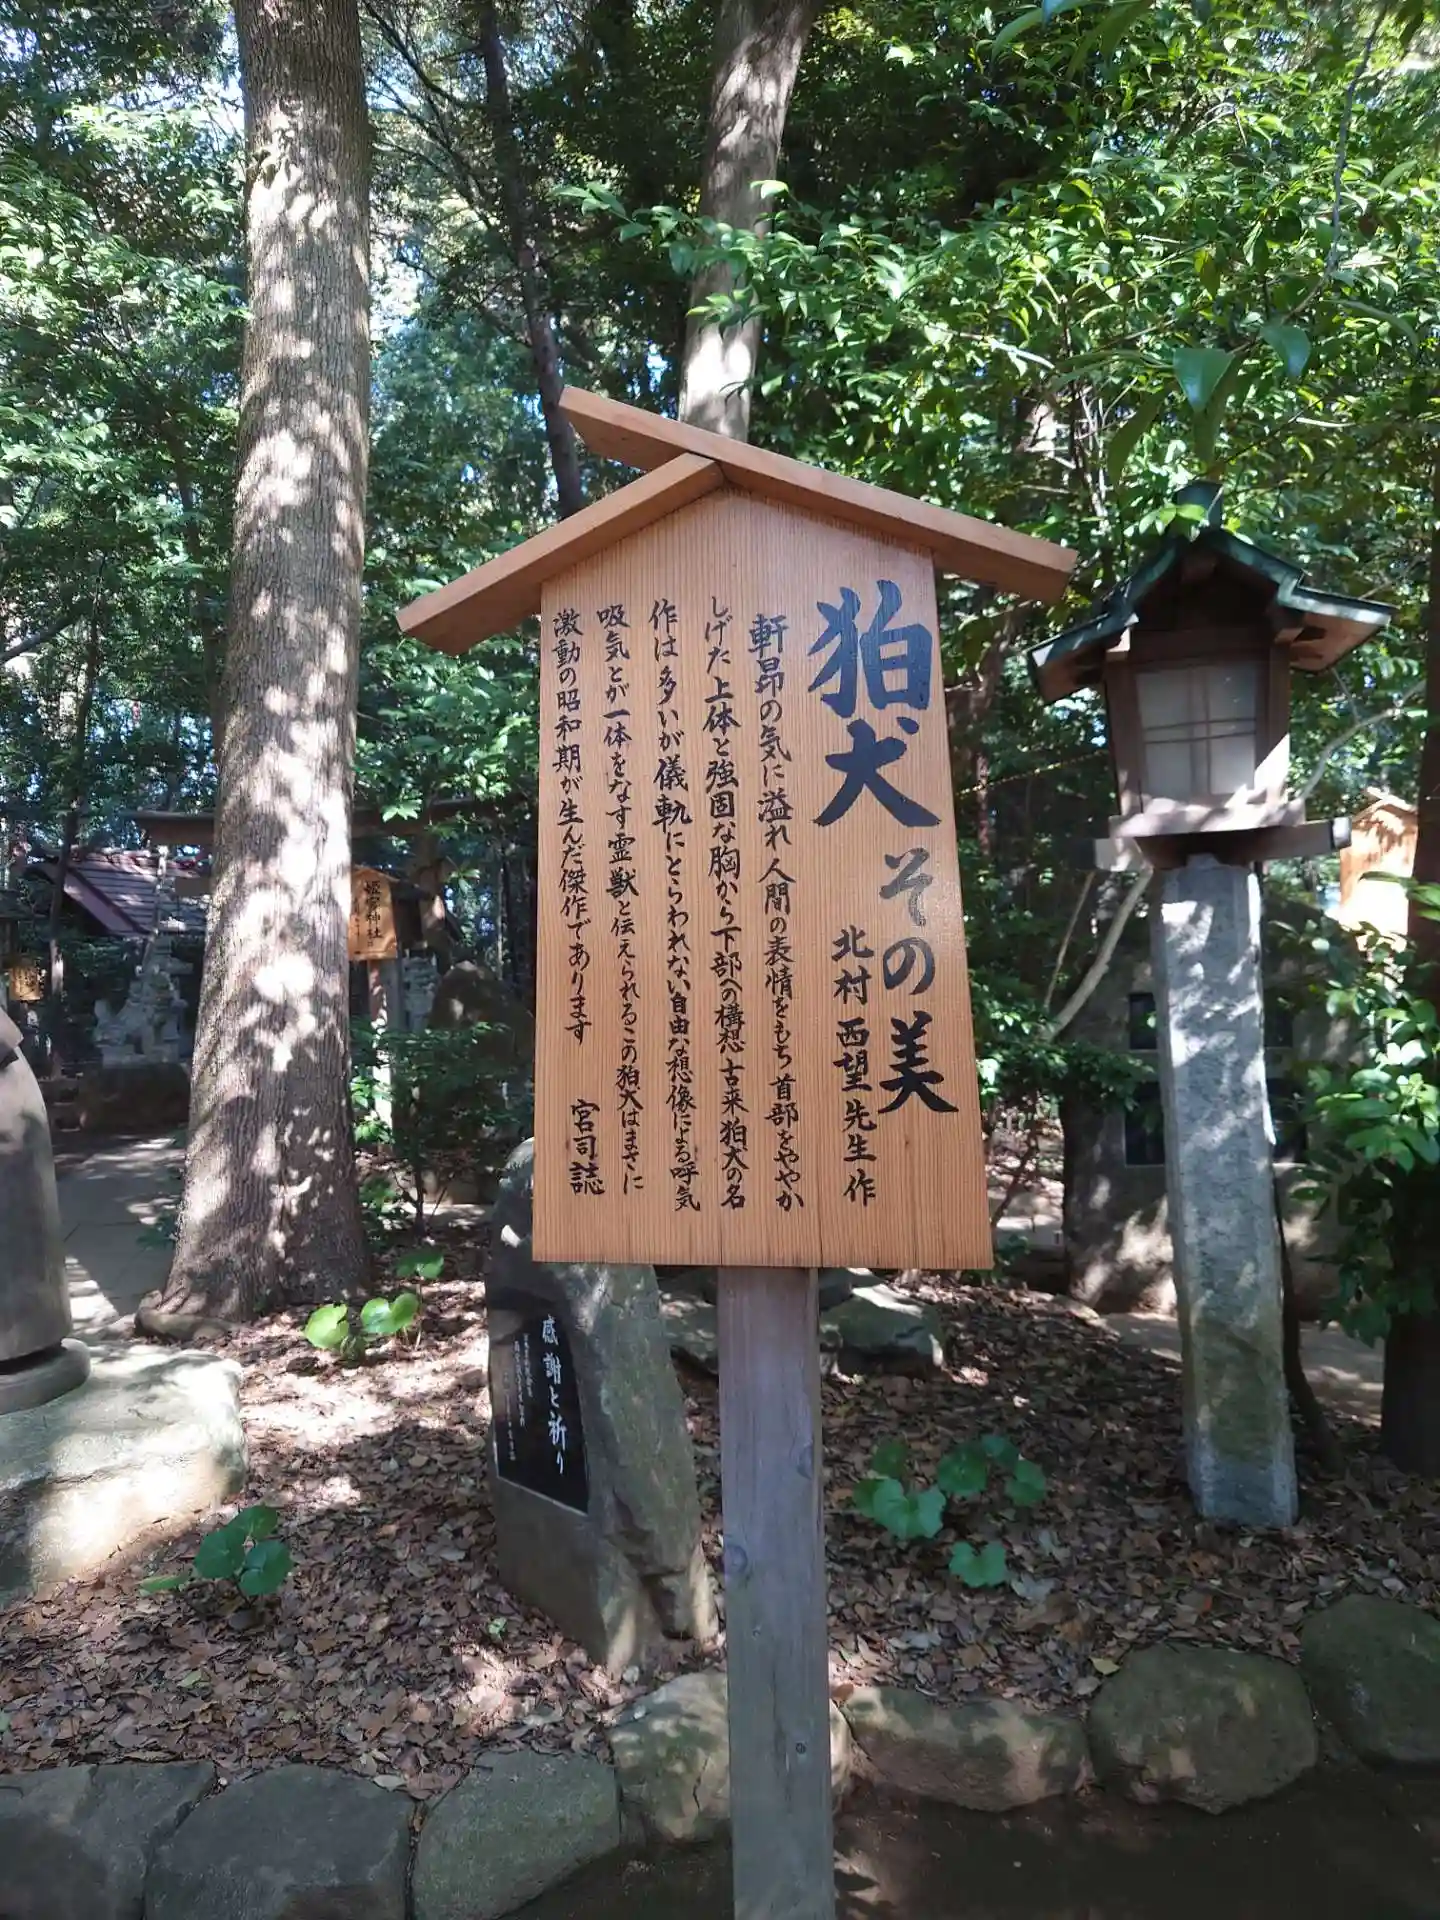 狛犬その美
北村西望先生作
軒昂の気に溢れ人間の表情をもち首部をややか
しげた上体と強固な胸から下部への構想古来狛犬の名
作は多いが儀軌にとらわれない自由な想像による呼気
吸気とが一体をなす霊獣と伝えられるこの狛犬はまさに
激動の昭和期が生んだ傑作であります
宮司誌
感謝と祈り
姫宮神社